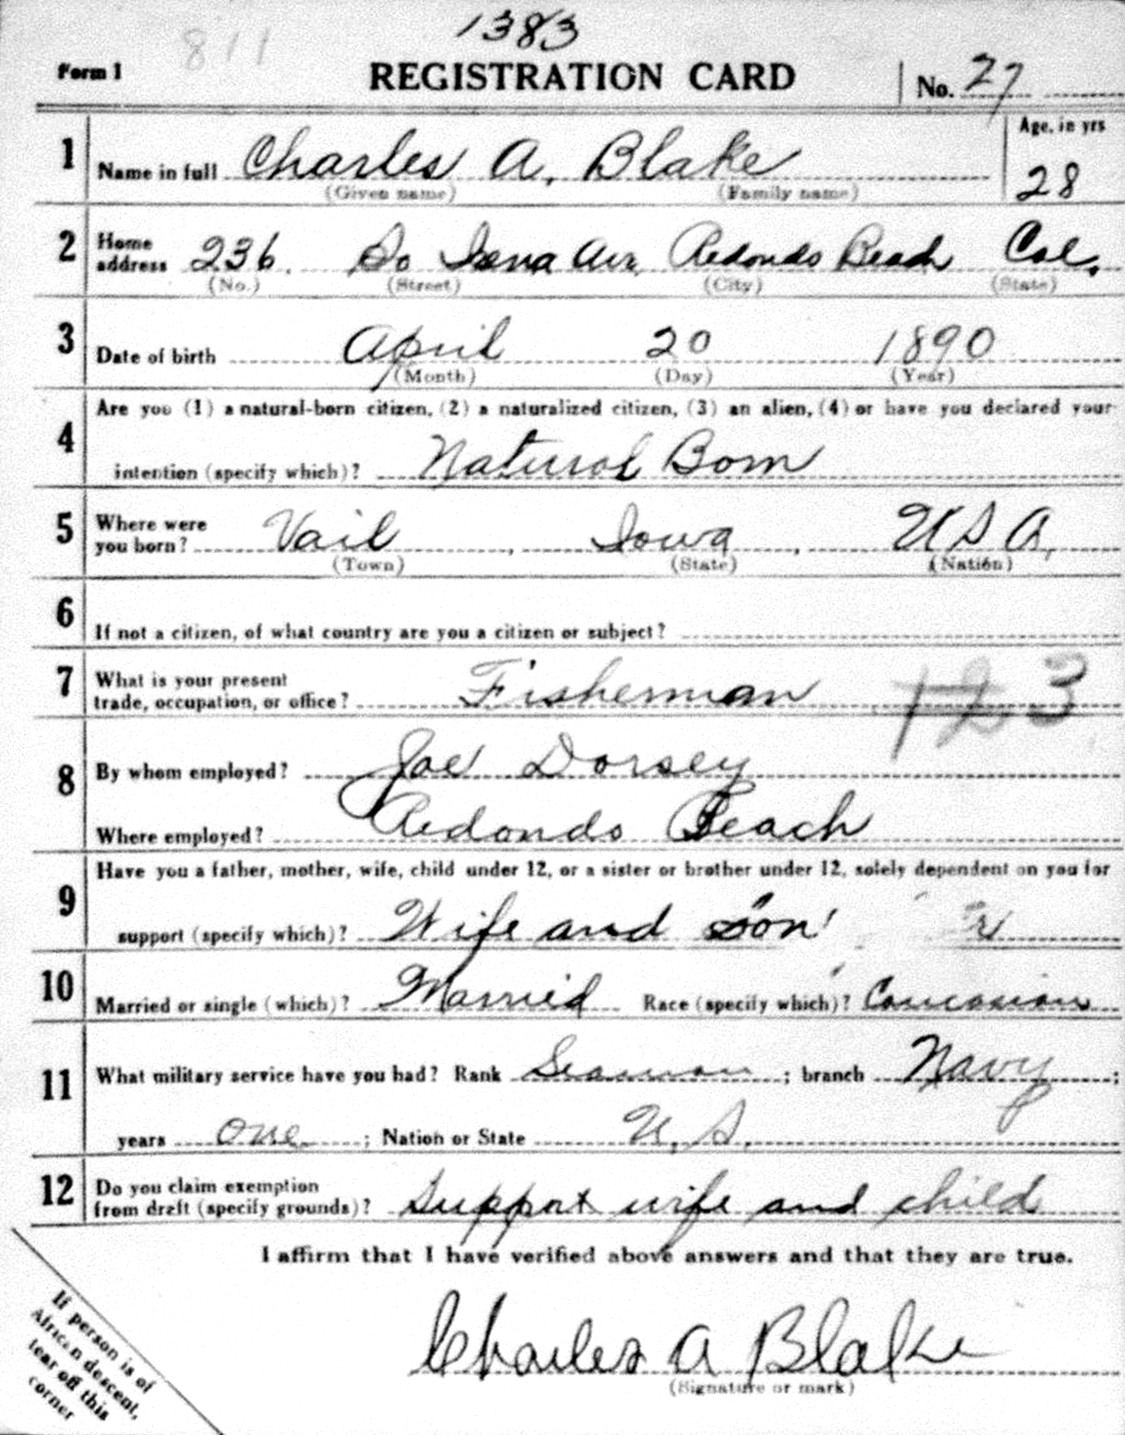 1383
811
Form 1 REGISTRATION CARD No. 27
1 Name in full Charles A. Blake Age, in yrs 28
(Given name) (Family name)
2 Home address 236 So Irena Ave, Redondo Beach Cal.
(No.) (Street) (City) (State)
3 Date of birth April 20 1890
(Month) (Day) (Year)
4 Are you (1) a natural-born citizen, (2) a naturalized citizen, (3) an alien, (4) or have you declared your
intention (specify which)? Natural Born
5 Where were you born? Vail, Iowa, U S A.
(Town) (State) (Nation)
6 If not a citizen, of what country are you a citizen or subject?
7 What is your present trade, occupation, or office? Fisherman 12 3
8 By whom employed? Joe Dorsey
Where employed? Redondo Beach
9 Have you a father, mother, wife, child under 12, or a sister or brother under 12, solely dependent on you for
support (specify which)? Wife and son
10 Married or single (which)? Married Race (specify which)? Caucasian
11 What military service have you had? Rank Seaman; branch Navy;
years one; Nation or State U. S.
12 Do you claim exemption from draft (specify grounds)? Support wife and child
I affirm that I have verified above answers and that they are true.
Charles A Blake
(Signature or mark)
If person is of
African descent,
tear off this
corner